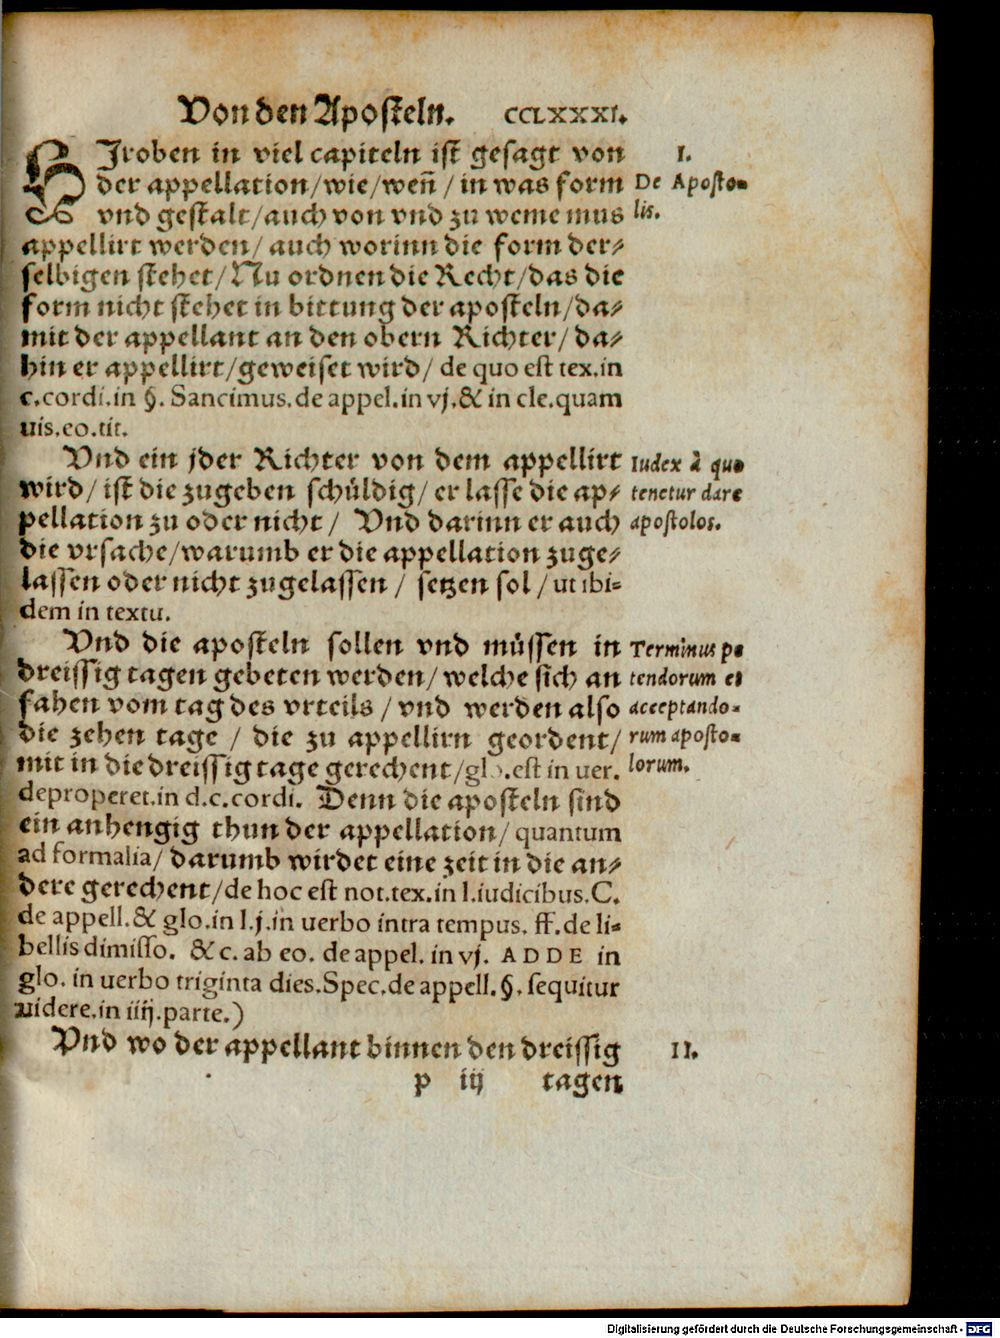 Von den Aposteln. CCLXXXI.
HJroben in viel capiteln ist gesagt von
der appellation/wie/weñ/in was form
vnd gestalt/auch von vnd zu weme mus
appellirt werden/ auch worinn die form der⸗
selbigen stehet/Nu ordnen die Recht/das die
form nicht stehet in bittung der aposteln/da⸗
mit der appellant an den obern Richter/da⸗
hin er appellirt/geweiset wird/ de quo est tex.in
c.cordi.in §. Sancimus.de appel.in vj.& in cle.quam
uis.eo.tit.
Vnd ein jder Richter von dem appellirt
wird/ist die zugeben schüldig/ er lasse die ap⸗
pellation zu oder nicht/ Vnd darinn er auch
die vrsache/warumb er die appellation zuge⸗
lassen oder nicht zugelassen/ setzen sol/ut ibi-
dem in textu.
Vnd die aposteln sollen vnd müssen in
dreissig tagen gebeten werden/welche sich an
fahen vom tag des vrteils/vnd werden also
die zehen tage / die zu appellirn geordent/
mit in die dreissig tage gerechent/glo.est in uer.
deproperet.in d.c.cordi. Denn die aposteln sind
ein anhengig thun der appellation/ quantum
ad formalia/ darumb wirdet eine zeit in die an⸗
dere gerechent/de hoc est not.tex.in l.iudicibus.C.
de appell.& glo.in l.j.in uerbo intra tempus. ff.de li-
bellis dimisso. & c. ab eo. de appel. in vj. ADDE in
glo. in uerbo triginta dies.Spec.de appell.§. sequitur
uidere.in iiij.parte.)
Vnd wo der appellant binnen den dreissig
p iij tagen
I.
De Aposto-
lis.
Iudex à quo
tenetur dare
apostolos.
Terminus pe
tendorum et
acceptando-
rum aposto-
lorum.
II.
Digitalisierung gefördert durch die Deutsche Forschungsgemeinschaft - DFG